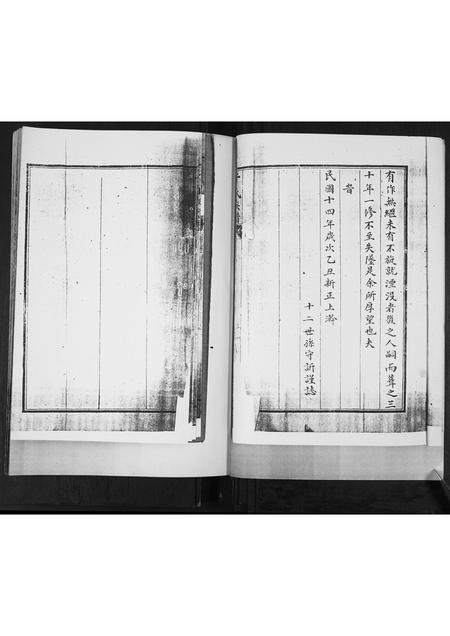 有作無繼未有不旋就湮沒者後之人嗣而葺之三
十年一修不至失墜是余所厚望也夫
旹
民國十四年歲次乙丑新正上澣
十二世孫守訢謹誌